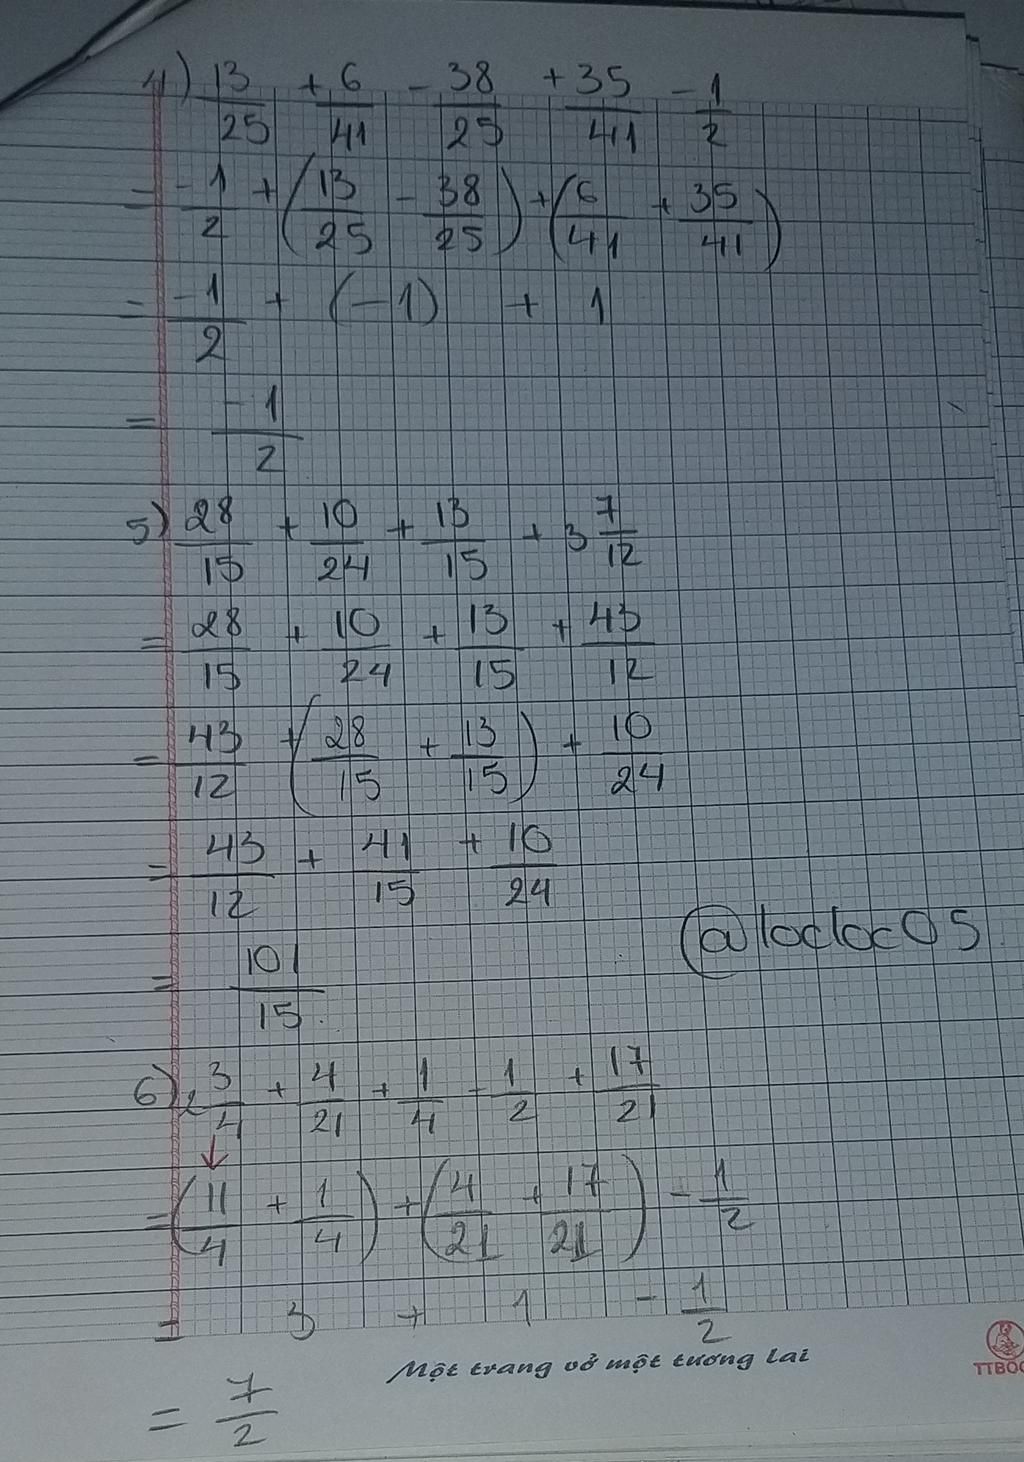 4) 13/25 + 6/41 - 38/25 + 35/41 - 1/2
= -1/2 + (13/25 - 38/25) + (6/41 + 35/41)
= -1/2 + (-1) + 1
= -1/2
5) 28/15 + 10/24 + 13/15 + 3 7/12
= 28/15 + 10/24 + 13/15 + 43/12
= 43/12 + (28/15 + 13/15) + 10/24
= 43/12 + 41/15 + 10/24
@locloc05
= 101/15
6) 2 3/4 + 4/21 + 1/4 - 1/2 + 17/21
= (11/4 + 1/4) + (4/21 + 17/21) - 1/2
= 3 + 1 - 1/2
Một trang vở một tương lai
= 7/2